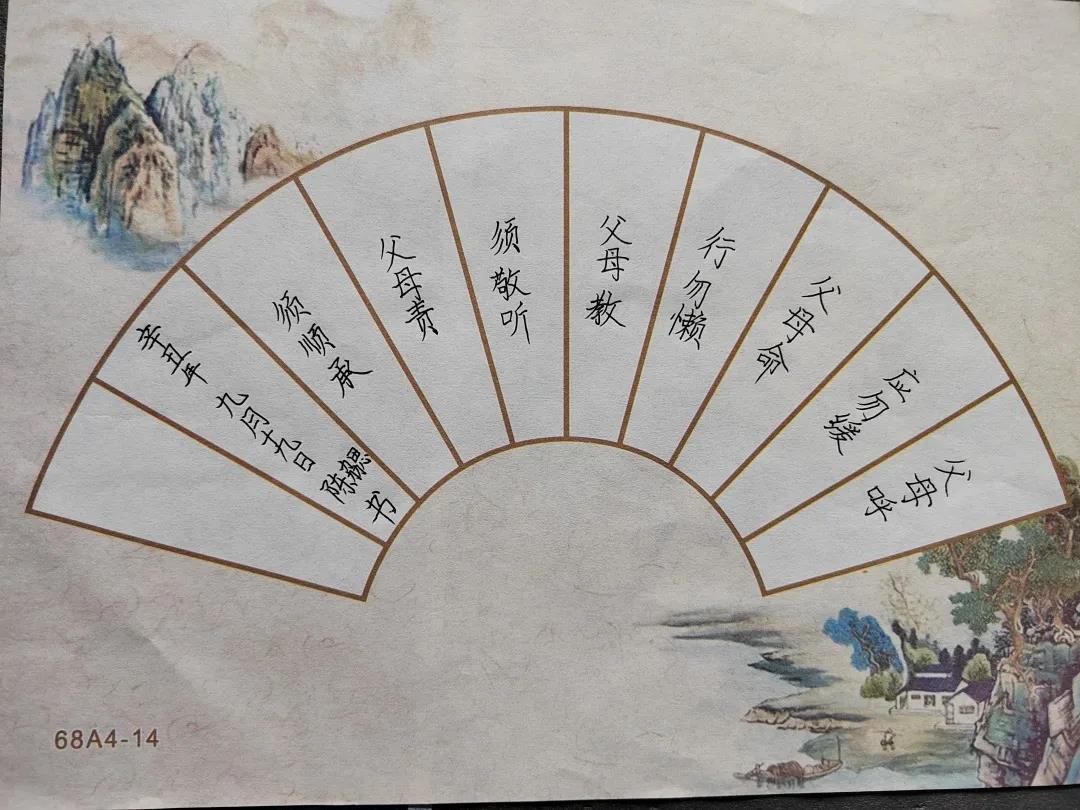 父母呼
应勿缓
父母命
行勿懒
父母教
须敬听
父母责
须顺承
辛丑年 九月十九日 陈勰书
68A4-14